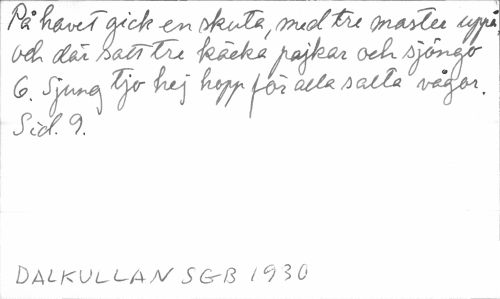 På havet gick en skuta, med tre master uppå,
och där satt tre käcka pojkar och sjöngo
6. Sjung tjo hej hopp för alla salta vågor.
Sid. 9.
DALKULLAN SGB 1930